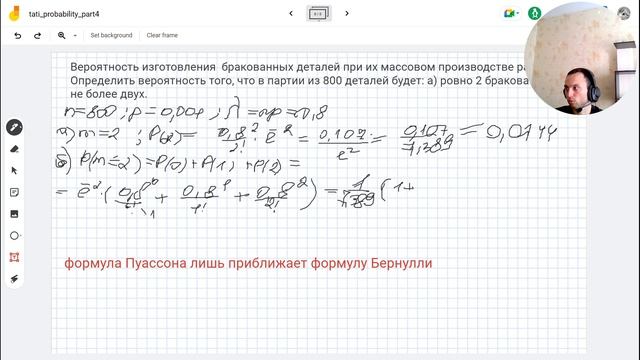 tati_probability_part4
8/8
Set background
Clear frame
Вероятность изготовления бракованных деталей при их массовом производстве ра
Определить вероятность того, что в партии из 800 деталей будет: а) ровно 2 бракова
не более двух.
n=800; p=0,001; λ=np=0,8
а) m=2; P(2)= 0,8²/2! · e⁻² = 0,107/e² = 0,107/7,389 = 0,0144
б) P(m≤2)=P(0)+P(1)+P(2)=
= e⁻² · (0,8⁰/0! + 0,8¹/1! + 0,8²/2!) = 1/7,389 (1+
формула Пуассона лишь приближает формулу Бернулли